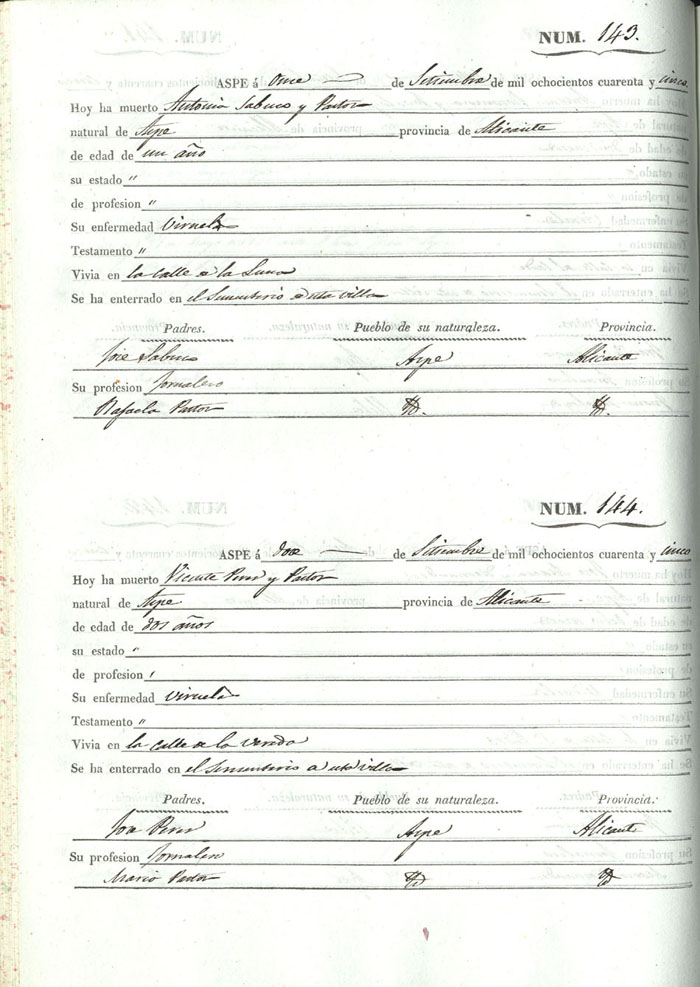 NUM. 143.
ASPE á Once de Setiembre de mil ochocientos cuarenta y cinco
Hoy ha muerto Antonia Sabuco y Pastor
natural de Aspe provincia de Alicante
de edad de un año
su estado "
de profesion "
Su enfermedad Viruela
Testamento "
Vivia en la Calle de la Luna
Se ha enterrado en el Sementerio de esta villa
Padres. Pueblo de su naturaleza. Provincia.
Jose Sabuco Aspe Alicante
Su profesion Jornalero
Rafaela Pastor
NUM. 144.
ASPE á doce de Setiembre de mil ochocientos cuarenta y cinco
Hoy ha muerto Vicente Perez y Pastor
natural de Aspe provincia de Alicante
de edad de dos años
su estado "
de profesion
Su enfermedad Viruela
Testamento "
Vivia en la Calle de la Vereda
Se ha enterrado en el Sementerio de esta villa
Padres. Pueblo de su naturaleza. Provincia.
Jose Perez Aspe Alicante
Su profesion Jornalero
Maria Pastor